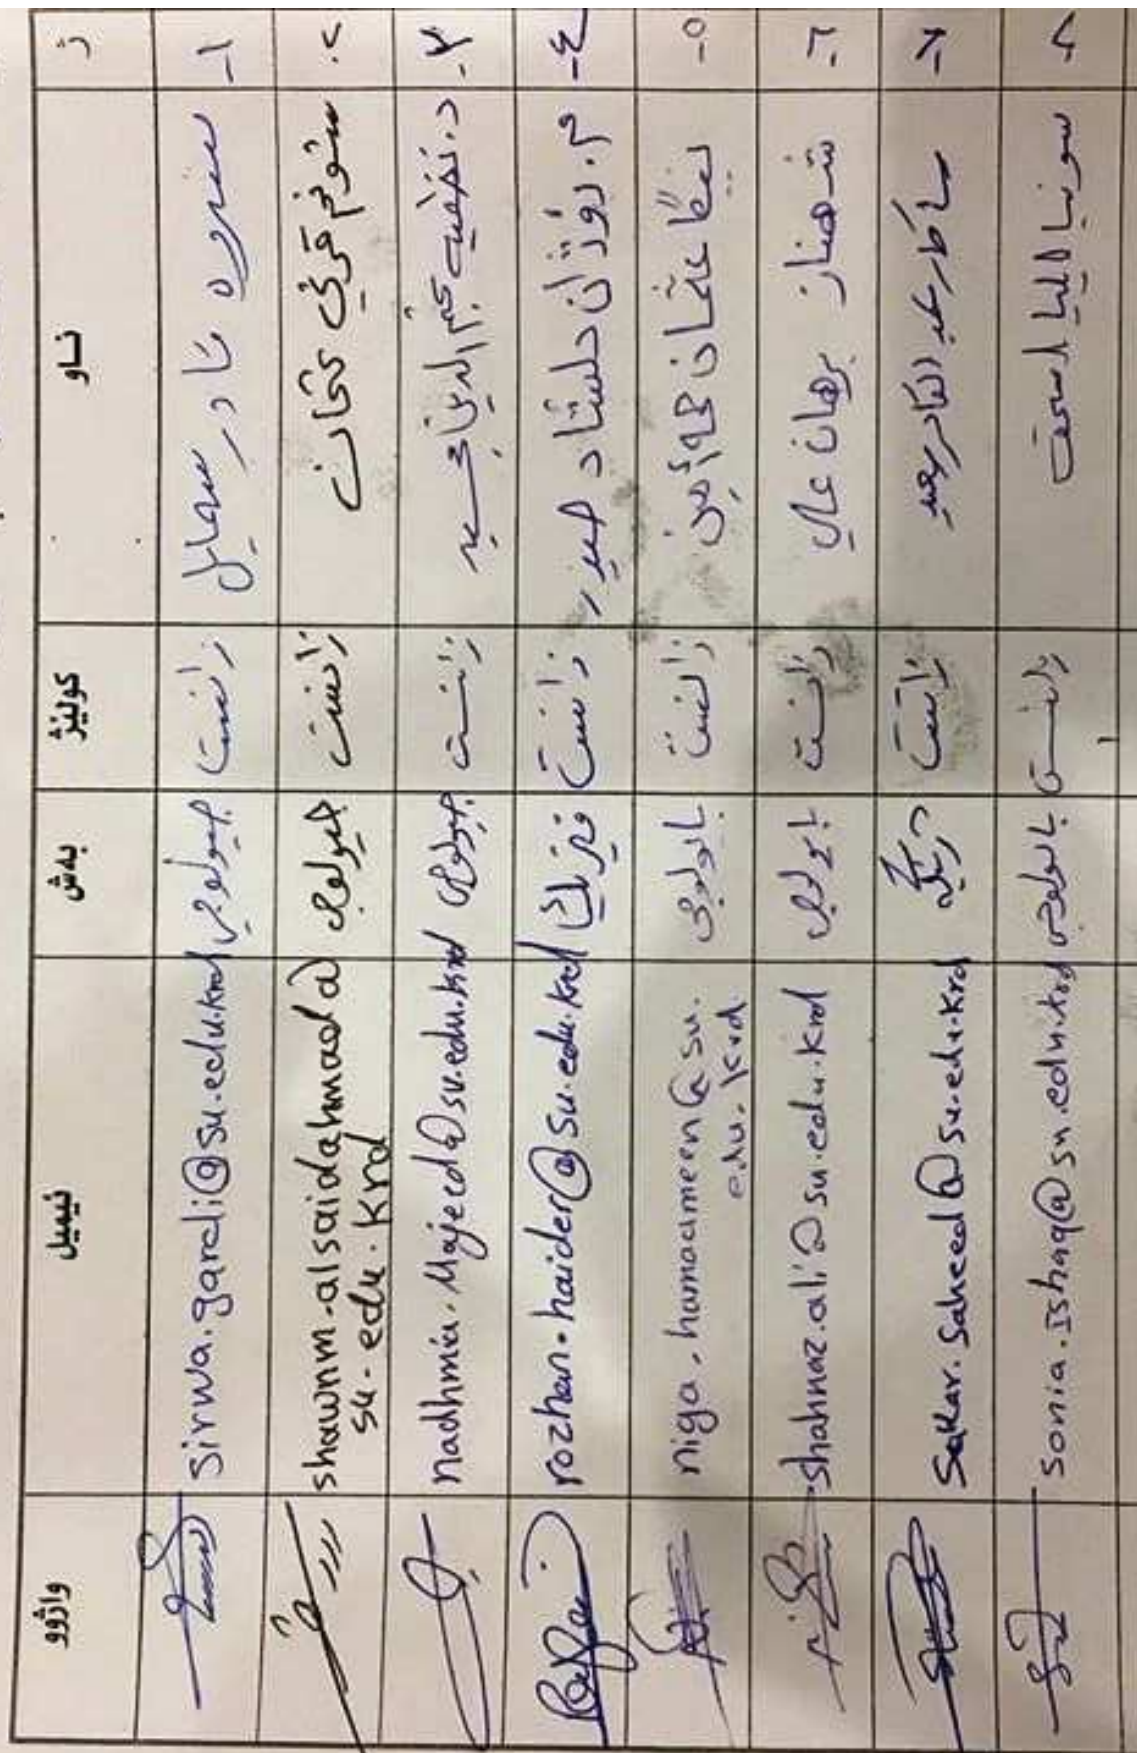 ژ ناو کولیژ بەش ئیمیل واژوو
١- سیروە نادر سمایل زانست بیولوجی sirwa.gardi@su.edu.krd
٢- زانست بیولوجی shawnm.alsaidahmad@
su.edu.krd
٣- زانست بیولوجی nadhmia.Majeed@su.edu.krd
٤- م. روژان دلشاد حیدر زانست فیزیک rozhan.haider@su.edu.krd
٥- نیگا عثمان حمەأمین زانست بایولوجی niga.hamaameen@su.
edu.krd
٦- شهناز برهان علی زانست بایولوجی shahnaz.ali@su.edu.krd
٧- عبدالقادر سعید زانست Sakar.Saheed@su.edu.krd
٨- سونیا ایلیا اسحق زانست بایولوجی sonia.Ishaq@su.edu.krd